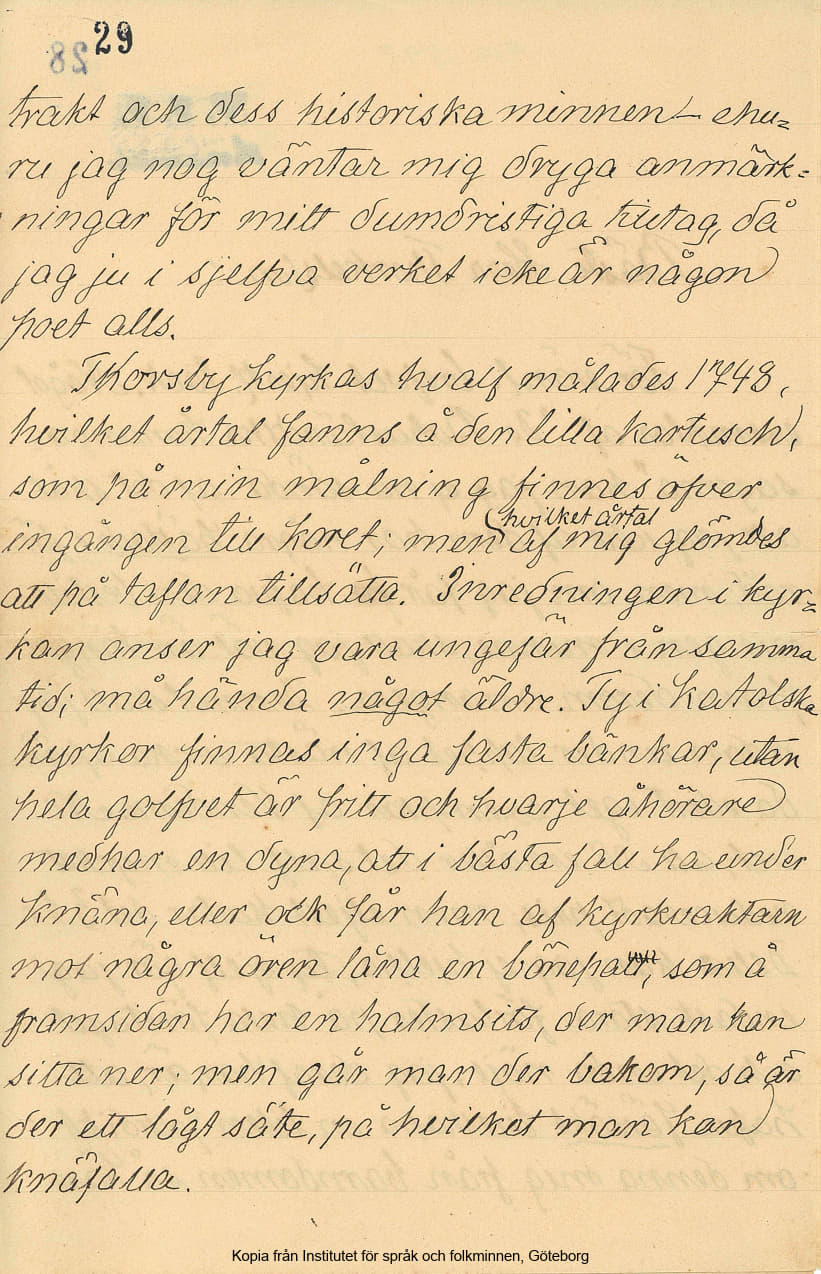 29
28
trakt och dess historiska minnen – ehu=
ru jag nog väntar mig dryga anmärk=
ningar för mitt dumdristiga tilltag, då
jag ju i sjelfva verket icke är någon
poet alls.
I Korsby kyrkas hvalf målades 1748,
hvilket årtal fanns å den lilla kartusch,
som på min målning finnes öfver
ingången till koret; men hvilket årtal af mig glömdes
att på taflan tillsätta. Inredningen i kyr=
kan anser jag vara ungefär från samma
tid; må hända något äldre. Ty i katolska
kyrkor finnas inga fasta bänkar, utan
hela golfvet är fritt och hvarje åhörare
medhar en dyna, att i bästa fall ha under
knäna, eller ock får han af kyrkvaktarn
mot några ören låna en bönepall, som å
framsidan har en halmsits, der man kan
sitta ner; men går man der bakom, så är
der ett lågt säte, på hvilket man kan
knäfalla.
Kopia från Institutet för språk och folkminnen, Göteborg